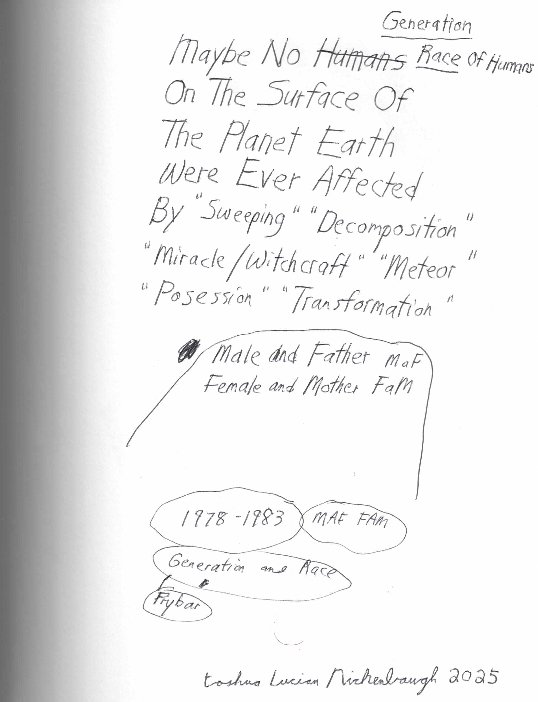 Generation
Maybe No Humans Race Of Humans
On The Surface Of
The Planet Earth
Were Ever Affected
By "Sweeping" "Decomposition"
"Miracle/Witchcraft" "Meteor"
"Posession" "Transformation"
Male and Father MaF
Female and Mother FaM
1978-1983 MAF FAM
Generation and Race
Lucian 2025